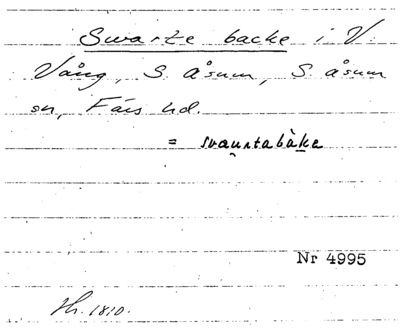 Swarte backe i V.
Vång, S. Åsum, S. Åsum
sn, Färs hd.
= svau̯rtabàke
Nr 4995
Sk. 1810.